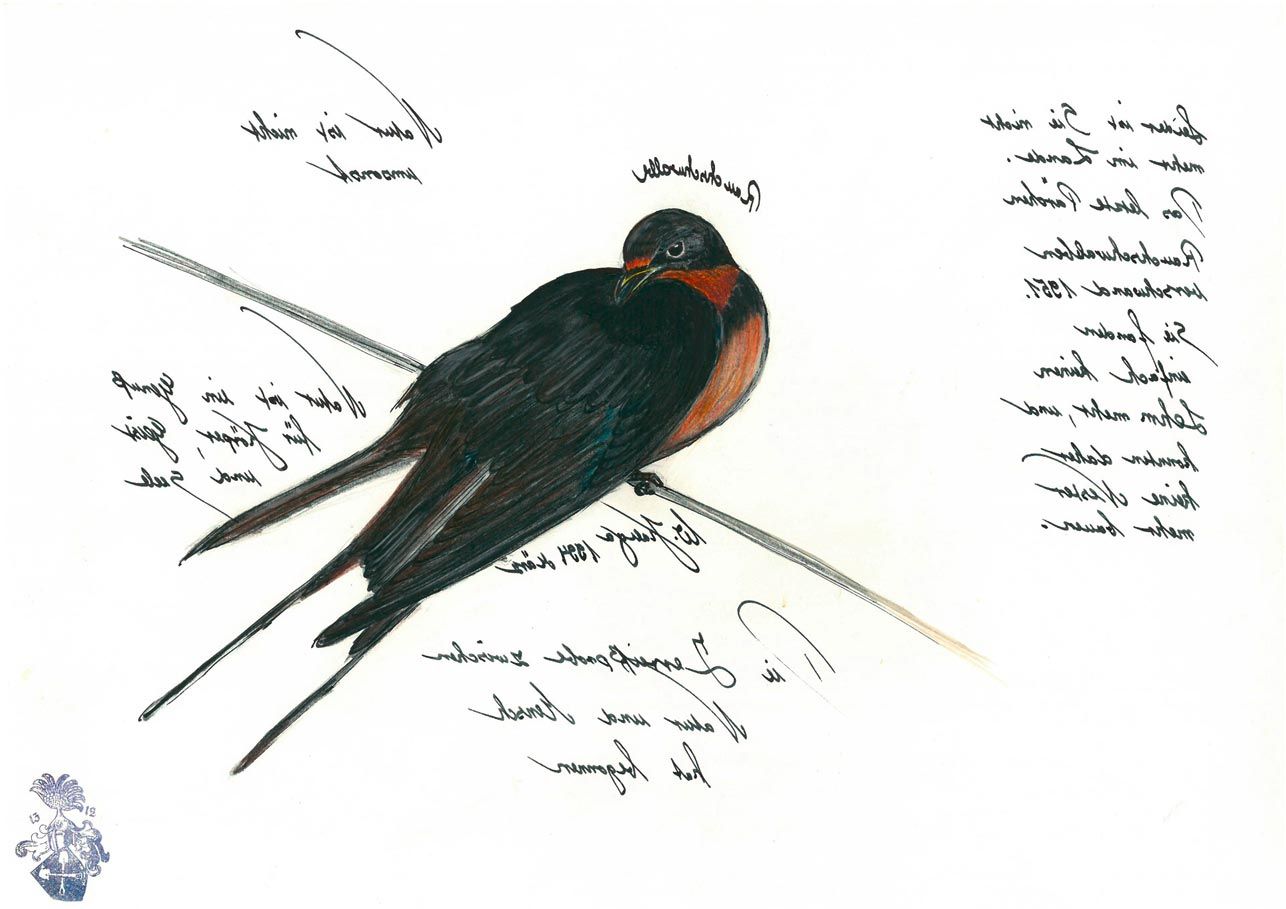 Natur ist nicht
umsonst
Rauchschwalbe
Leider ist Sie nicht
mehr im Lande.
Das letzte Pärchen
Rauchschwalben
verschwand 1951.
Sie fanden
einfach keinen
Lehm mehr, und
konnten daher
keine Nester
mehr bauen.
Natur ist ein Genuß
für Köper, Geist
und Seele
1994 März
Die Zerreißprobe zwischen
Natur und Mensch
hat begonnen
13 12